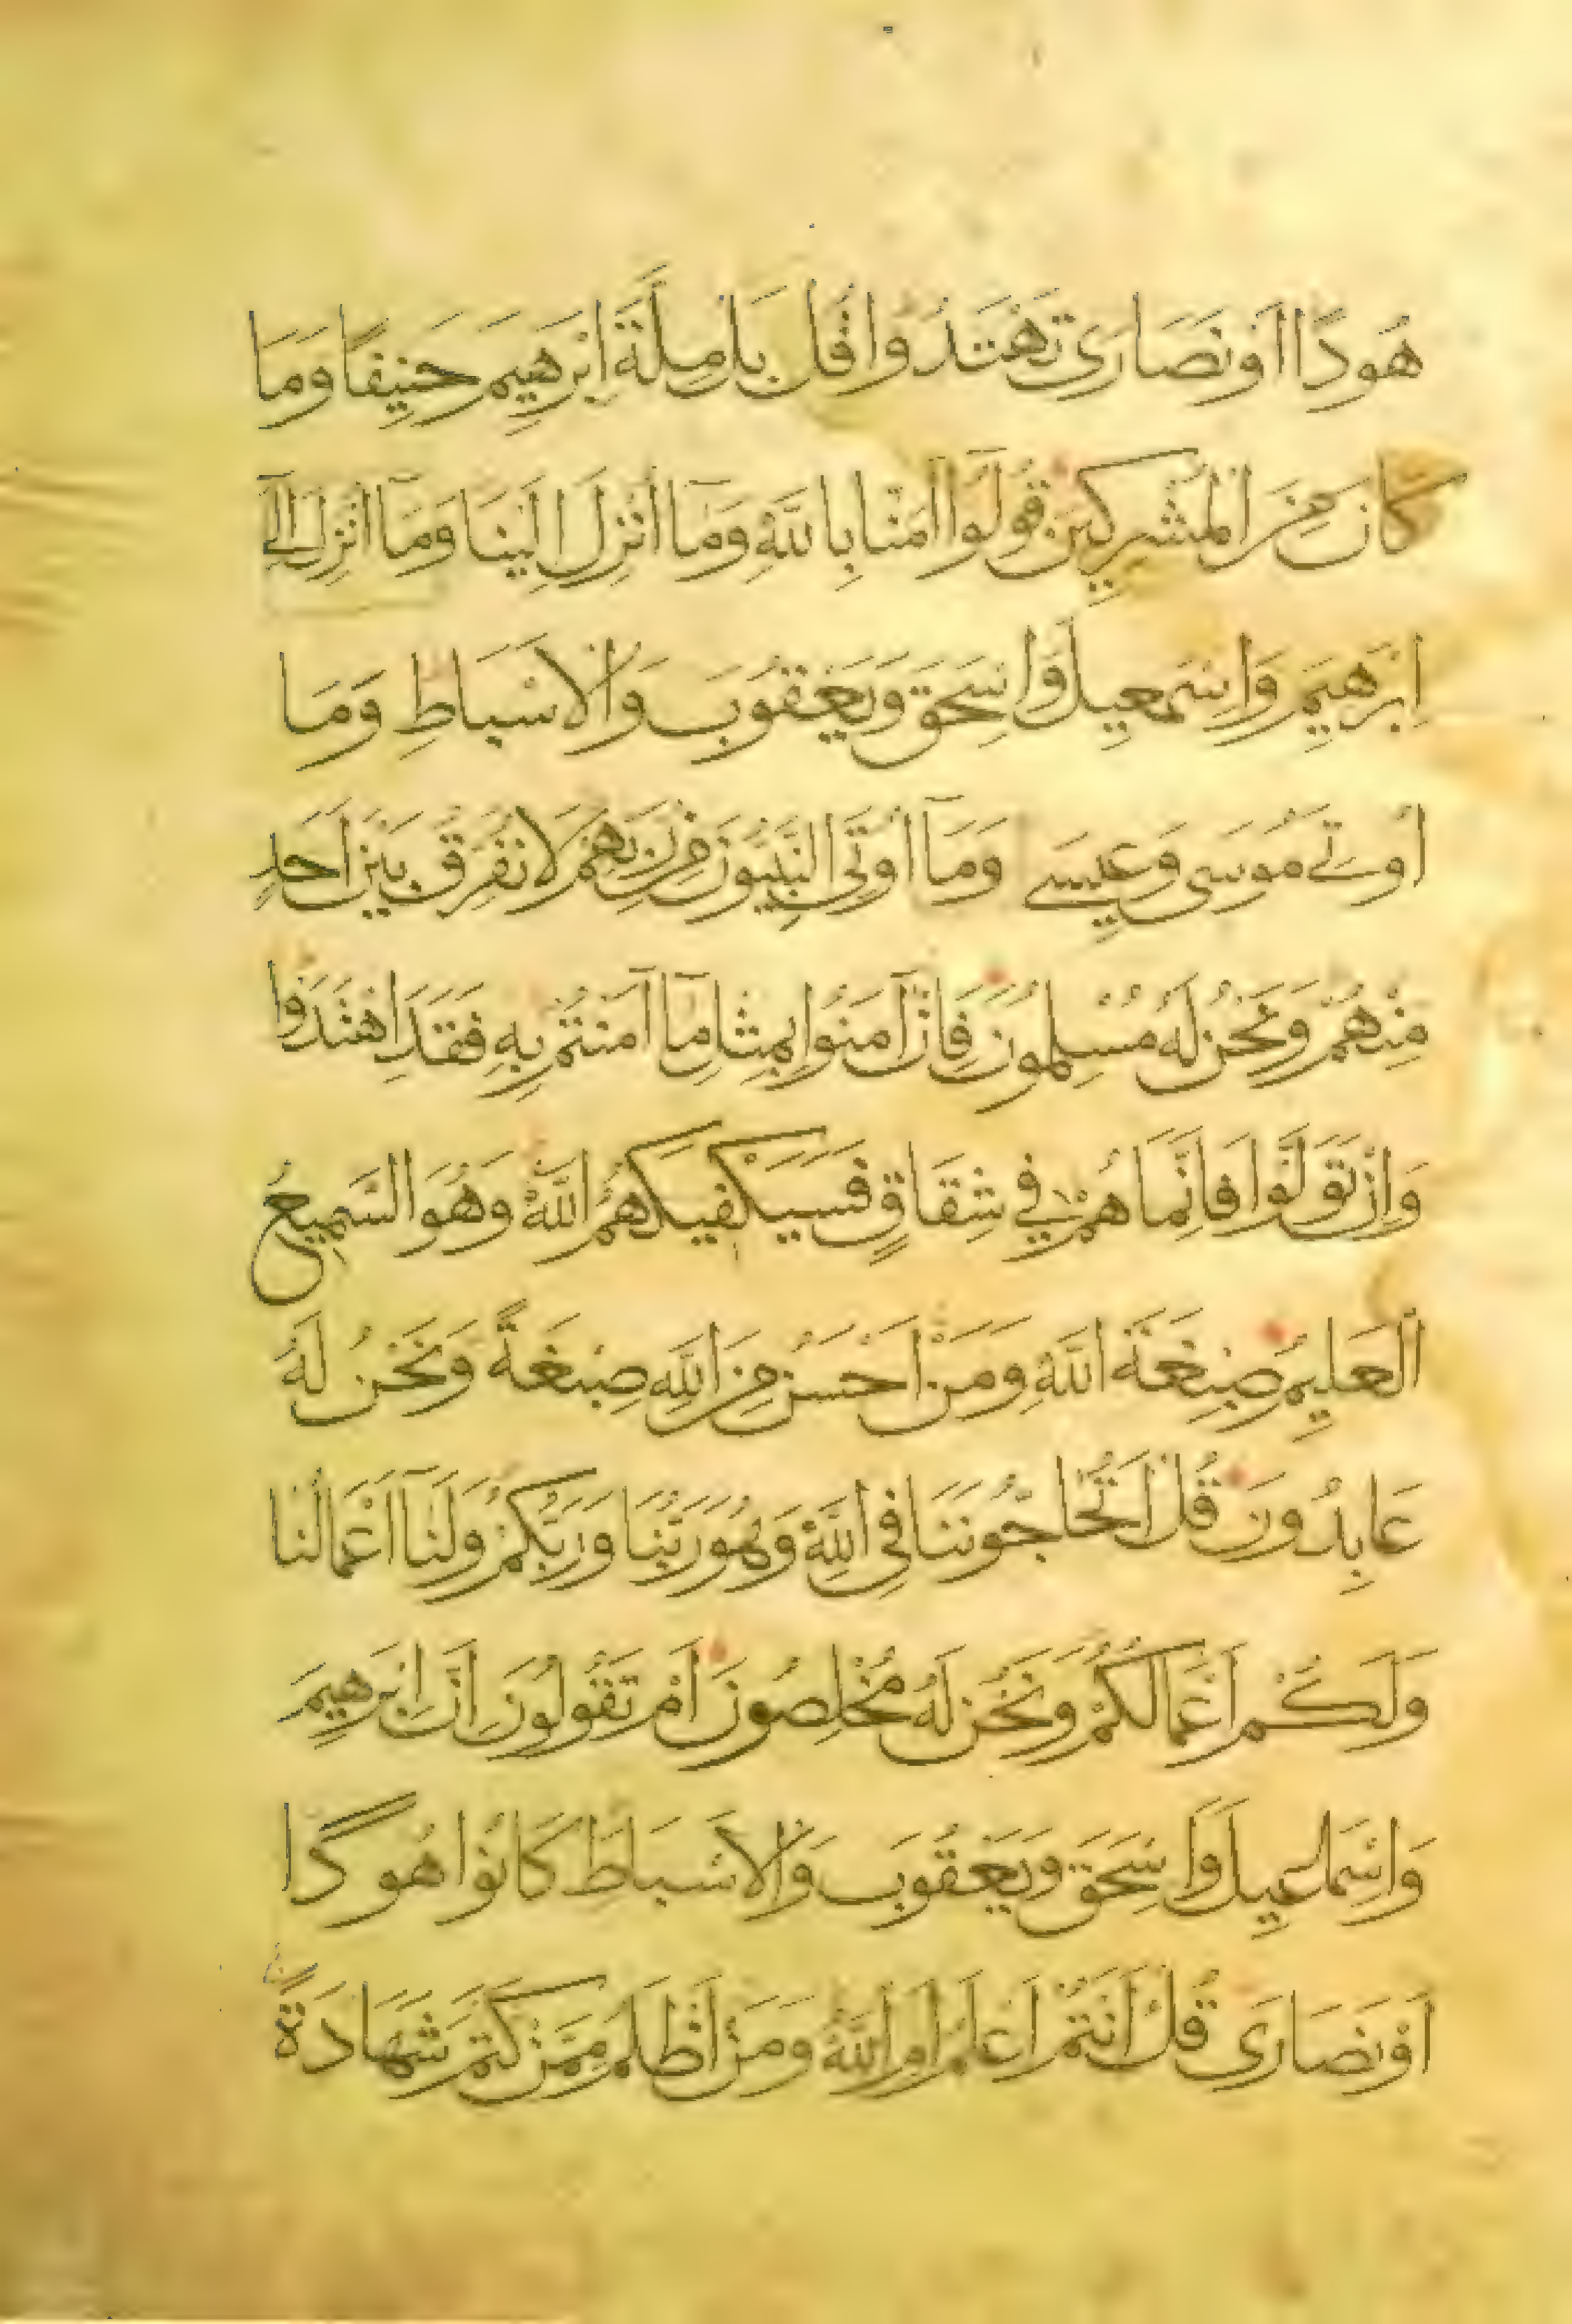 هُودًا اَوْ نَصَارَى تَهْتَدُوا قُلْ بَلْ مِلَّةَ اِبْرَهِيمَ حَنِيفًا وَمَا
كَانَ مِنَ الْمُشْرِكِينَ قُولُوا اٰمَنَّا بِاللَّهِ وَمَآ اُنْزِلَ اِلَيْنَا وَمَآ اُنْزِلَ اِلَى
اِبْرَهِيمَ وَاِسْمَعِيلَ وَاِسْحَقَ وَيَعْقُوبَ وَالْاَسْبَاطِ وَمَا
اُوتِىَ مُوسَى وَعِيسَى وَمَآ اُوتِىَ النَّبِيُّونَ مِنْ رَبِّهِمْ لَا نُفَرِّقُ بَيْنَ اَحَدٍ
مِنْهُمْ وَنَحْنُ لَهُ مُسْلِمُونَ فَاِنْ آمَنُوا بِمِثْلِ مَآ آمَنْتُمْ بِهِ فَقَدِ اهْتَدَوْا
وَاِنْ تَوَلَّوْا فَاِنَّمَا هُمْ فِي شِقَاقٍ فَسَيَكْفِيكَهُمُ اللَّهُ وَهُوَ السَّمِيعُ
الْعَلِيمُ صِبْغَةَ اللَّهِ وَمَنْ اَحْسَنُ مِنَ اللَّهِ صِبْغَةً وَنَحْنُ لَهُ
عَابِدُونَ قُلْ اَتُحَاجُّونَنَا فِي اللَّهِ وَهُوَ رَبُّنَا وَرَبُّكُمْ وَلَنَآ اَعْمَالُنَا
وَلَكُمْ اَعْمَالُكُمْ وَنَحْنُ لَهُ مُخْلِصُونَ اَمْ تَقُولُونَ اِنَّ اِبْرَهِيمَ
وَاِسْمَاعِيلَ وَاِسْحَقَ وَيَعْقُوبَ وَالْاَسْبَاطَ كَانُوا هُودًا
اَوْ نَصَارَى قُلْ ءَاَنْتُمْ اَعْلَمُ اَمِ اللَّهُ وَمَنْ اَظْلَمُ مِمَّنْ كَتَمَ شَهَادَةً